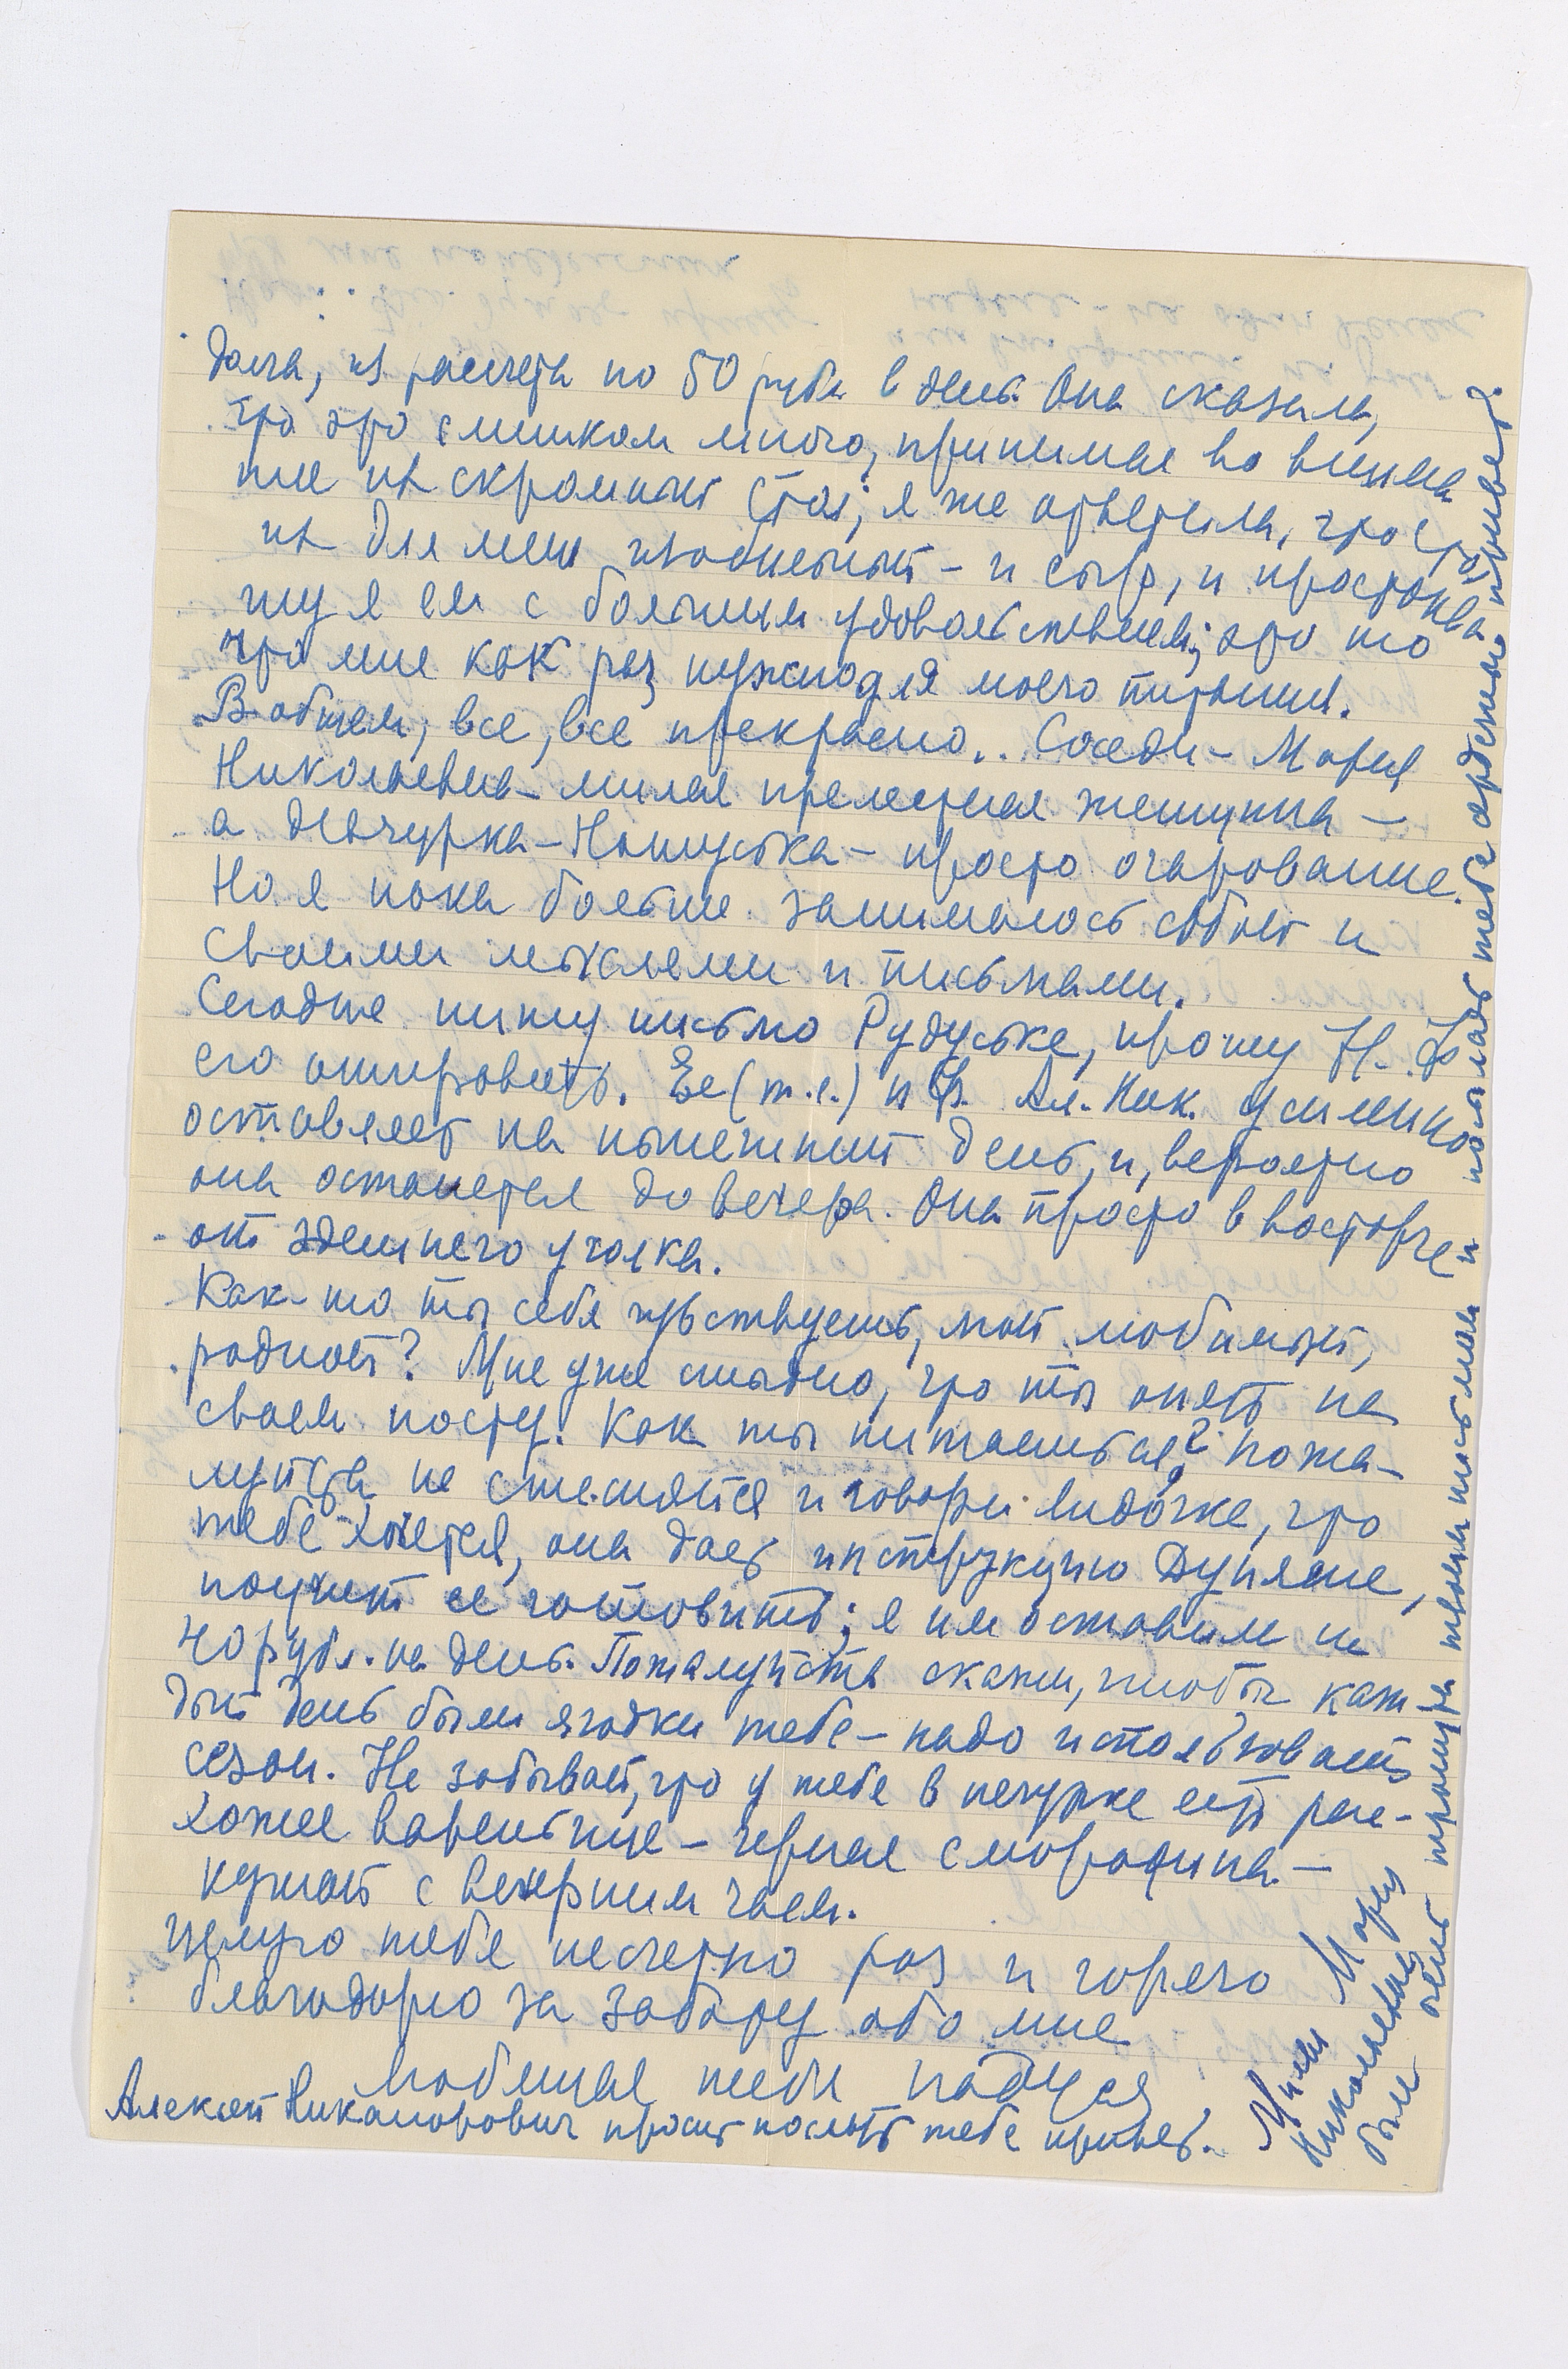 дала, из расчета по 50 руб. в день. Она сказала,
что это слишком много, принимая во внима
ние их скромный стол; я же ответила, что стол
их для меня изобильный - и сыр, и простоква
шу я ем с большим удовольствием; это то
что мне как раз нужно для моего питания.
В общем, все, все прекрасно.. Соседи - Мария
Николаевна - милая прелестная женщина -
а девчурка - - просто очарование.
Но я пока больше занималась собой и
своими мыслями и письмами.
Сегодня пишу письмо Рудуське, прошу Н.
его отправить. Ее (т.е.) Ал. Ник. усиленно
оставляет на нынешний день, и, вероятно
она останется до вечера. Она просто в восторге
от здешнего уголка.
Как-то ты себя чувствуешь, мой любимый,
родной? Мне уже стыдно, что ты опять на
своем посту. Как ты питаешься? Пожа-
луйста не стесняйся и говори Лидочке, что
тебе хочется, она даст инструкцию Дуняше,
поучит ее готовить; я им оставила по
40 рубл. на день. Пожалуйста скажи, чтобы каж
дый день были ягодки тебе - надо использовать
сезон. Не забывай, что у тебя в печурке есть рас-
хожее вареньице - черная смородина -
кушай с вечерним чаем.
Целую тебя несчетно раз и горячо
благодарю за заботу обо мне
Любящая тебя Надуся
Алексей Никанорович просит послать тебе привет.
Милая Мария
Николаевна
была очень тронута твоим письмом и посылает тебе ответный привет.